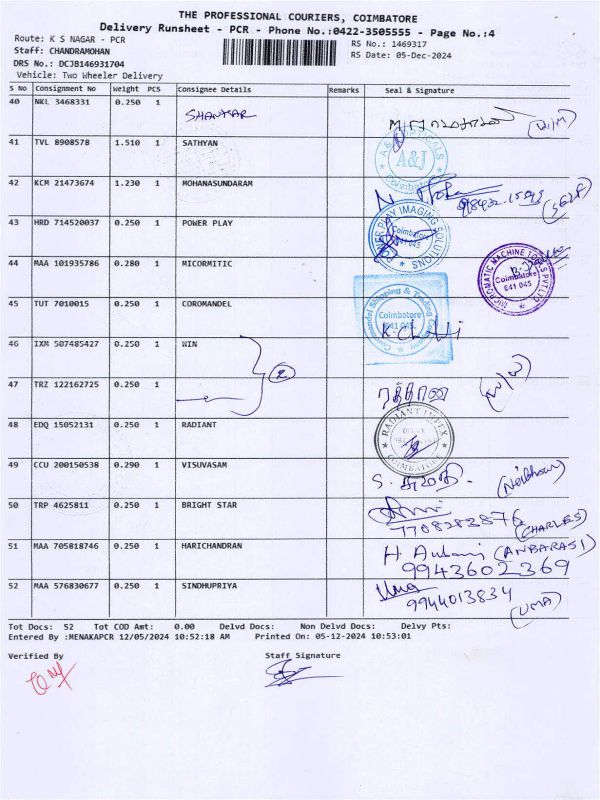 THE PROFESSIONAL COURIERS, COIMBATORE
Delivery Runsheet - PCR - Phone No.:0422-3505555 - Page No.:4
Route: K S NAGAR - PCR
RS No.: 1469317
Staff: CHANDRAMOHAN
RS Date: 05-Dec-2024
DRS No.: DCJB146931704
Vehicle: Two Wheeler Delivery
S No Consignment No Weight PCS Consignee Details Remarks Seal & Signature
40 NKL 3468331 0.250 1 SHANKAR
41 TVL 8908578 1.510 1 SATHYAN A&J Coimbatore
42 KCM 21473674 1.230 1 MOHANASUNDARAM (SELF)
43 HRD 714520037 0.250 1 POWER PLAY POWER PLAY IMAGING SOLUTIONS Coimbatore 641 045
44 MAA 101935786 0.280 1 MICORMITIC Coimbatore 641 045
45 TUT 7010015 0.250 1 COROMANDEL Coromandel Shipping & Trading Company Coimbatore 641 045.
46 IXM 507485427 0.250 1 WIN 2
47 TRZ 122162725 0.250 1
48 EDQ 15052131 0.250 1 RADIANT RADIANT INTEX COIMBATORE
49 CCU 200150538 0.290 1 VISUVASAM
50 TRP 4625811 0.250 1 BRIGHT STAR 7708283876 (CHARLES)
51 MAA 705818746 0.250 1 HARICHANDRAN (ANBARASI) 9943602369
52 MAA 576830677 0.250 1 SINDHUPRIYA Uma 9944013834 (UMA)
Tot Docs: 52 Tot COD Amt: 0.00 Delvd Docs: Non Delvd Docs: Delvy Pts:
Entered By :MENAKAPCR 12/05/2024 10:52:18 AM Printed On: 05-12-2024 10:53:01
Verified By Staff Signature